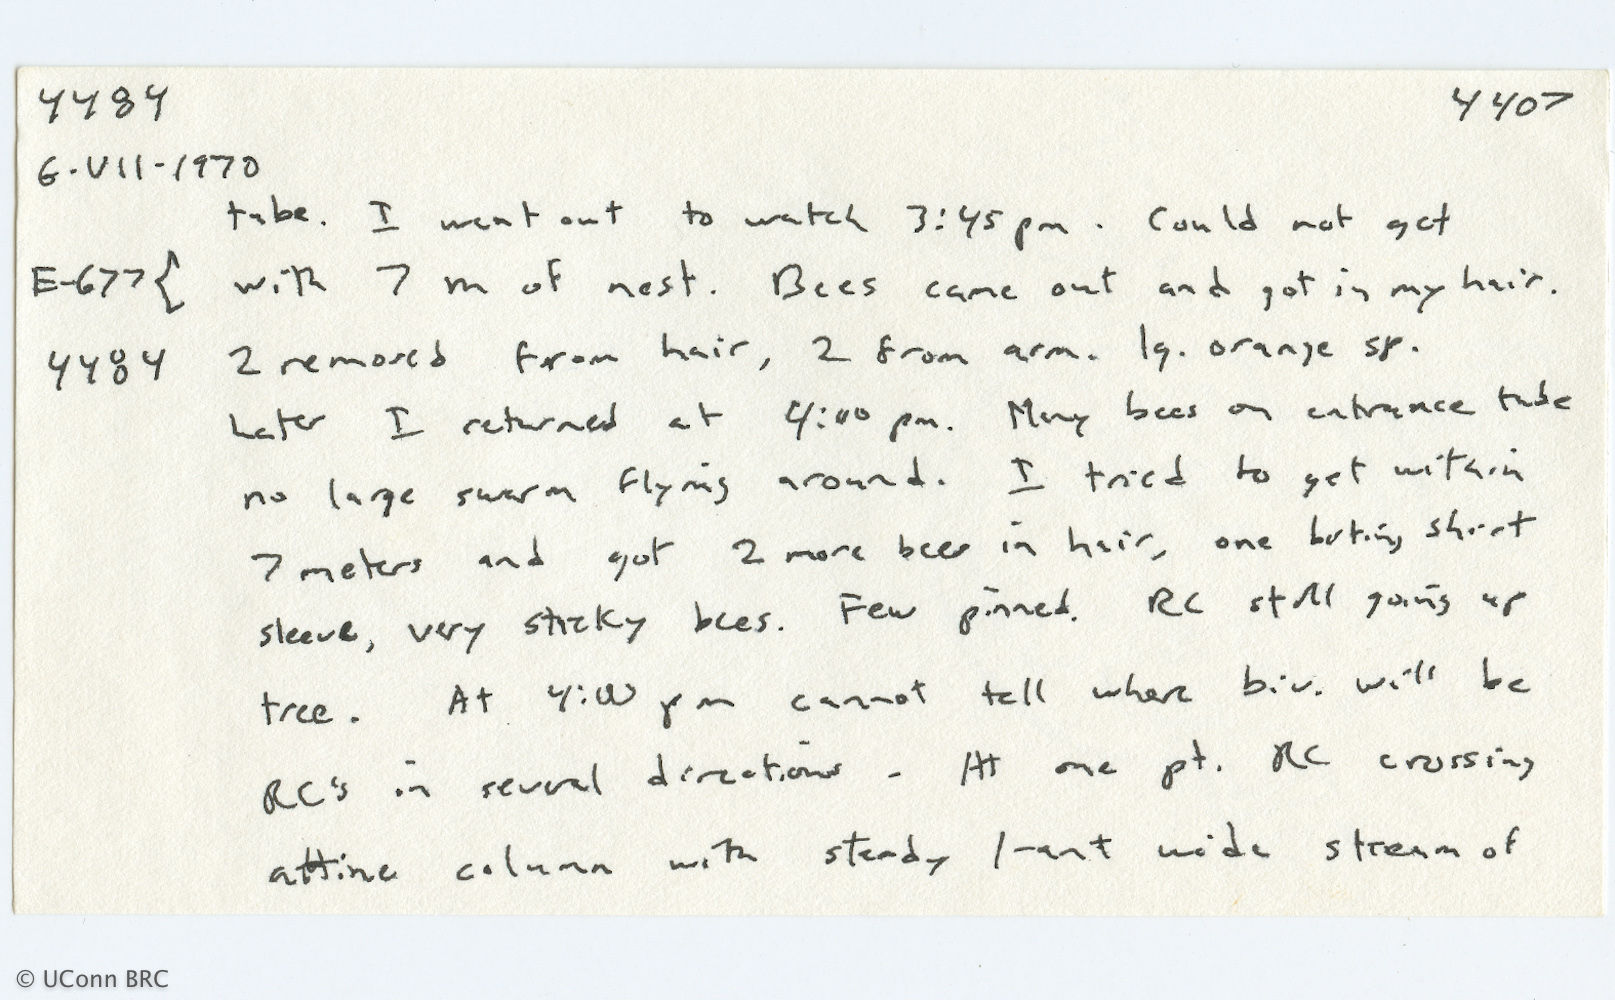 4484 4407
6-VII-1970
tube. I went out to watch 3:45 pm. Could not get
E-677{ with 7 m of nest. Bees came out and got in my hair.
4484 2 removed from hair, 2 from arm. lg. orange sp.
Later I returned at 4:00 pm. Many bees on entrance tube
no large swarm flying around. I tried to get within
7 meters and got 2 more bees in hair, one biting shirt
sleeve, very sticky bees. Few pinned. RC still going up
tree. At 4:00 pm cannot tell where biv. will be
RC's in several directions - At one pt. RC crossing
attine column with steady 1-ant wide stream of
© UConn BRC